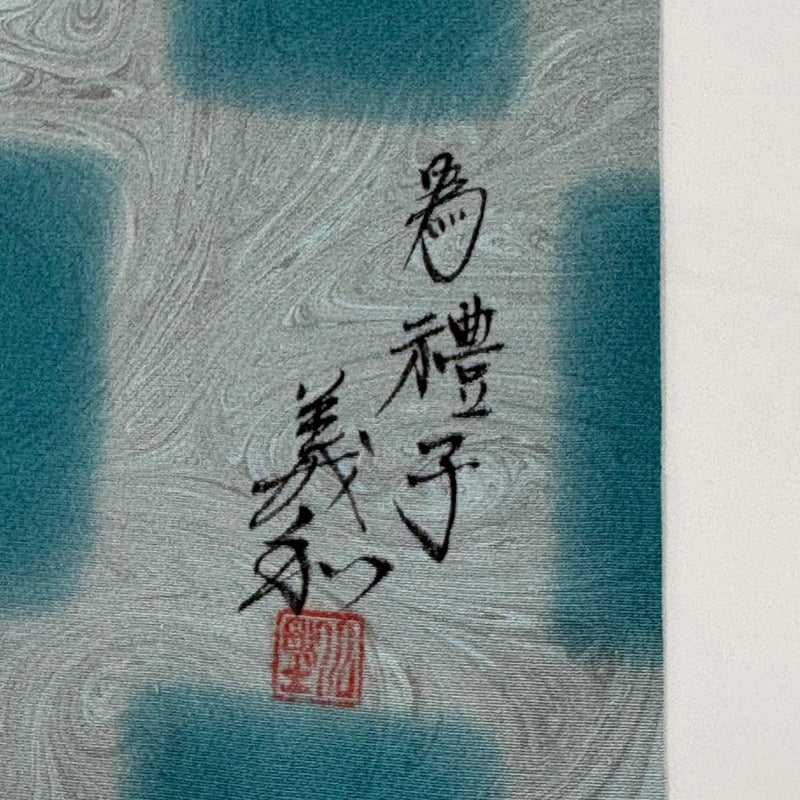 為禮子
義和